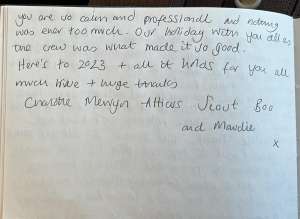 you are so calm and professional and nothing
was ever too much. Our holiday with you all as
the crew was what made it so good.
Here's to 2023 + all it holds for you all
much love + huge thanks
Charlotte Mervyn Atticus Scout Boo
and Maudie
x